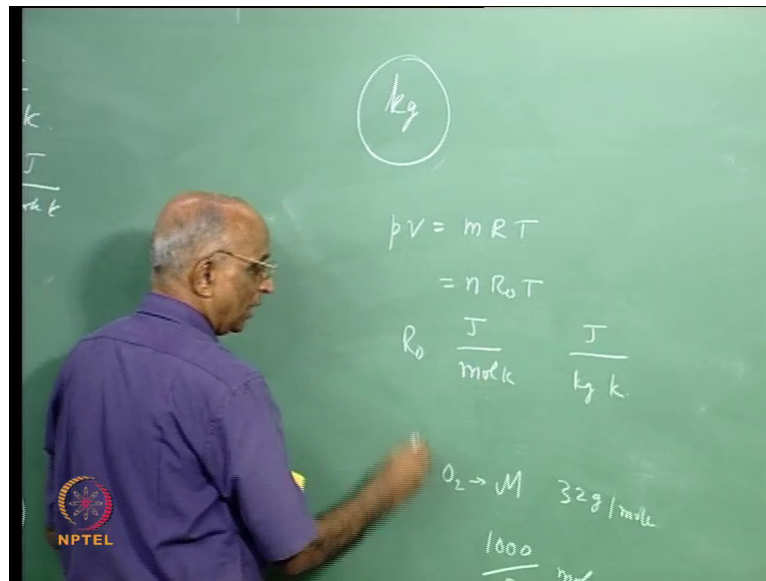 k
J
kg
pV = m R T
= n R₀ T
R₀ J/mol k J/kg k.
O₂ → M 32 g/mole
1000
mol
NPTEL